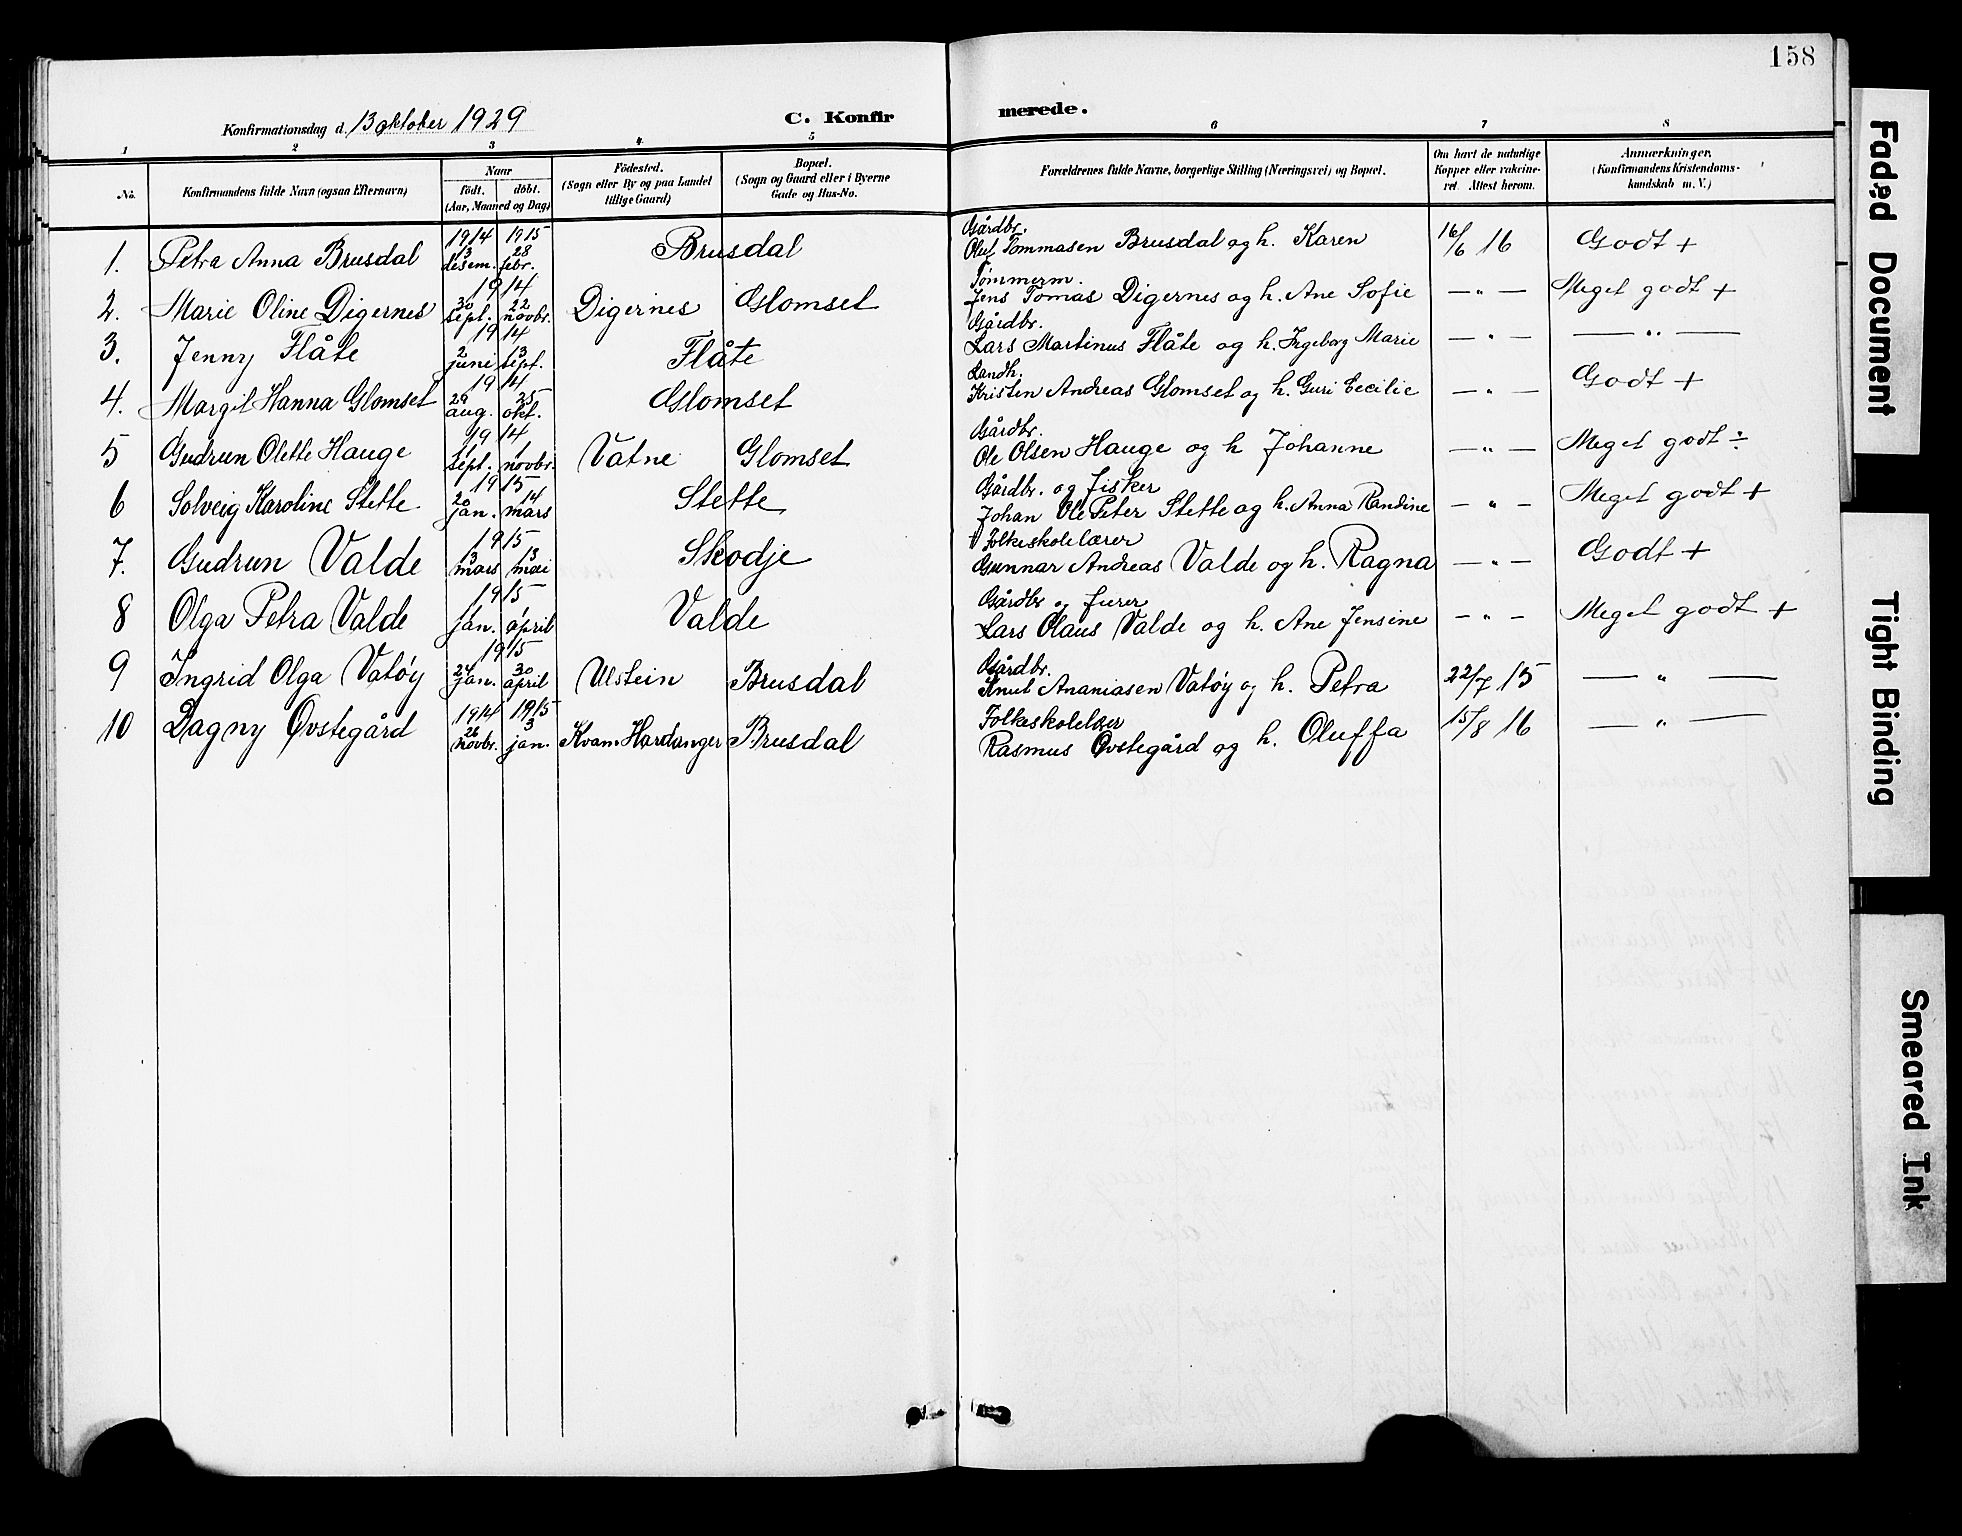 158
Konfirmationsdag d. 13 oktober 1929 C. Konfirmerede.
1 2 3 4 5 6 7 8
No. Konfirmandens fulde Navn (ogsaa Efternavn) Naar födt. döbt. (Aar, Maaned og Dag) Födested. (Sogn eller By og paa Landet tillige Gaard) Bopæl. (Sogn og Gaard eller i Byerne Gade og Hus-No. Forældrenes fulde Navne, borgerlige Stilling (Næringsvei) og Bopæl. Om havt de naturlige Kopper eller vakcineret. Attest herom. Anmærkninger. (Konfirmandens Kristendomskundskab m. V.)
1. Petra Anna Brusdal 1914 13 desem. 1915 28 febr. Brusdal Gårdbr. Oluf Tommasen Brusdal og h. Karen 16/6 16 Godt +
2. Marie Oline Digernes 1914 30 sept. 22 novbr. Digernes Glomset Tømmerm. Jens Tomas Digernes og h. Ane Sofie — " — Meget godt +
3. Jenny Flåte 1914 2 juni 13 sept. Flåte Gårdbr. Lars Martinus Flåte og h. Ingeborg Marie — " — — " —
4. Margit Hanna Glomset 1914 29 aug. 25 okt. Glomset Landh. Kristen Andreas Glomset og h. Guri Cecilie — " — Godt +
5 Gudrun Olette Hauge 1914 1 sept. 1 novbr. Vatne Glomset Gårdbr. Ole Olsen Hauge og h Johanne — " — Meget godt ÷
6 Solveig Karoline Stette 1915 20 jan. 14 mars Stette Gårdbr. og fisker Johan Ole Peter Stette og h. Anna Randine — " — Meget godt +
7. Gudrun Valde 1915 3 mars 13 mai Skodje Folkeskolelærer Gunnar Andreas Valde og h. Ragna — " — Godt +
8 Olga Petra Valde 1915 1 jan. 1 april Valde Gårdbr og furer Lars Olaus Valde og h. Ane Jensine — " — Meget godt +
9 Ingrid Olga Vatøy 1915 24 jan. 30 april Ulstein Brusdal Gårdbr. Knut Ananiasen Vatøy og h. Petra 22/7 15 — " —
10 Dagny Øvstegård 1914 26 novbr. 1915 3 jan. Kvam Hardanger Brusdal Folkeskolelær Rasmus Øvstegård og h. Oluffa 15/8 16 — " —
Faded Document
Tight Binding
Smeared Ink